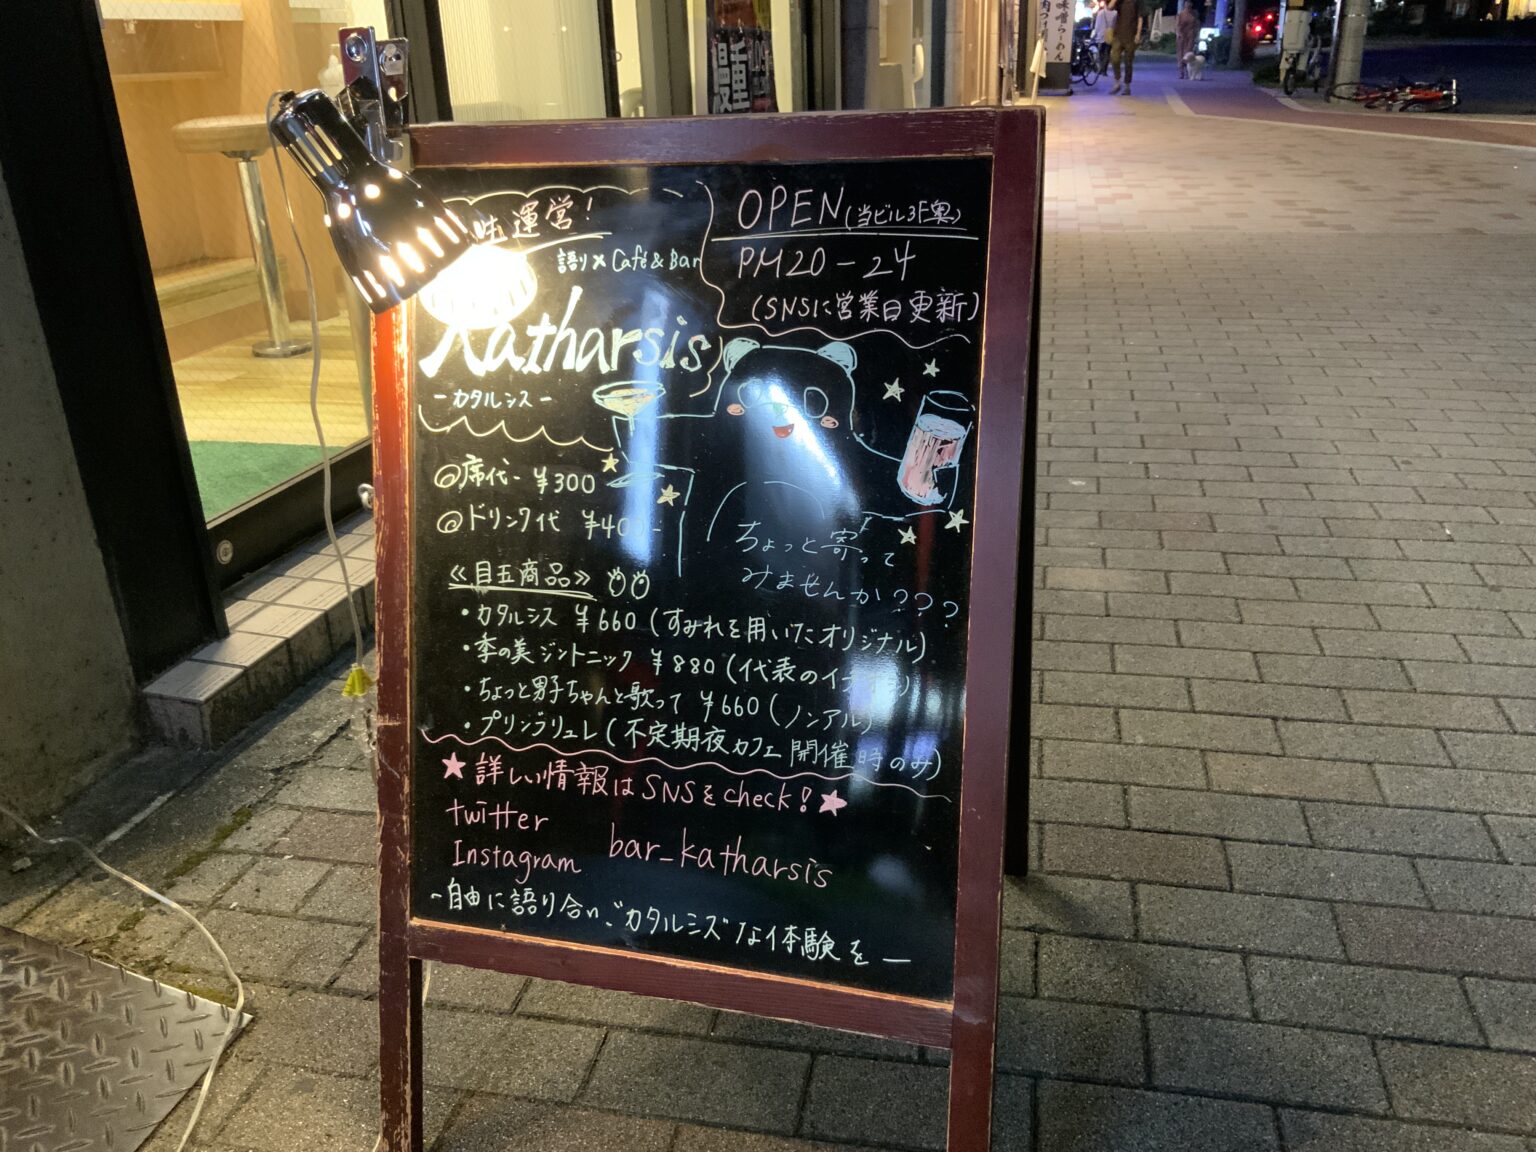 味運営!
語り×Café&Bar
Katharsis
-カタルシス-
OPEN(当ビル3F奥)
PM20-24
(SNSに営業日更新)
◎席代-¥300
◎ドリンク代 ¥400-
ちょっと寄って
みませんか???
《目玉商品》
・カタルシス ¥660(すみれを用いたオリジナル)
・季の美ジントニック ¥880(代表の
・ちょっと男子ちゃんと歌って ¥660(ノンアル)
・プリンブリュレ(不定期夜カフェ開催時のみ)
★詳しい情報はSNSをcheck!★
twitter
Instagram
bar_katharsis
-自由に語り合い"カタルシス"な体験を-